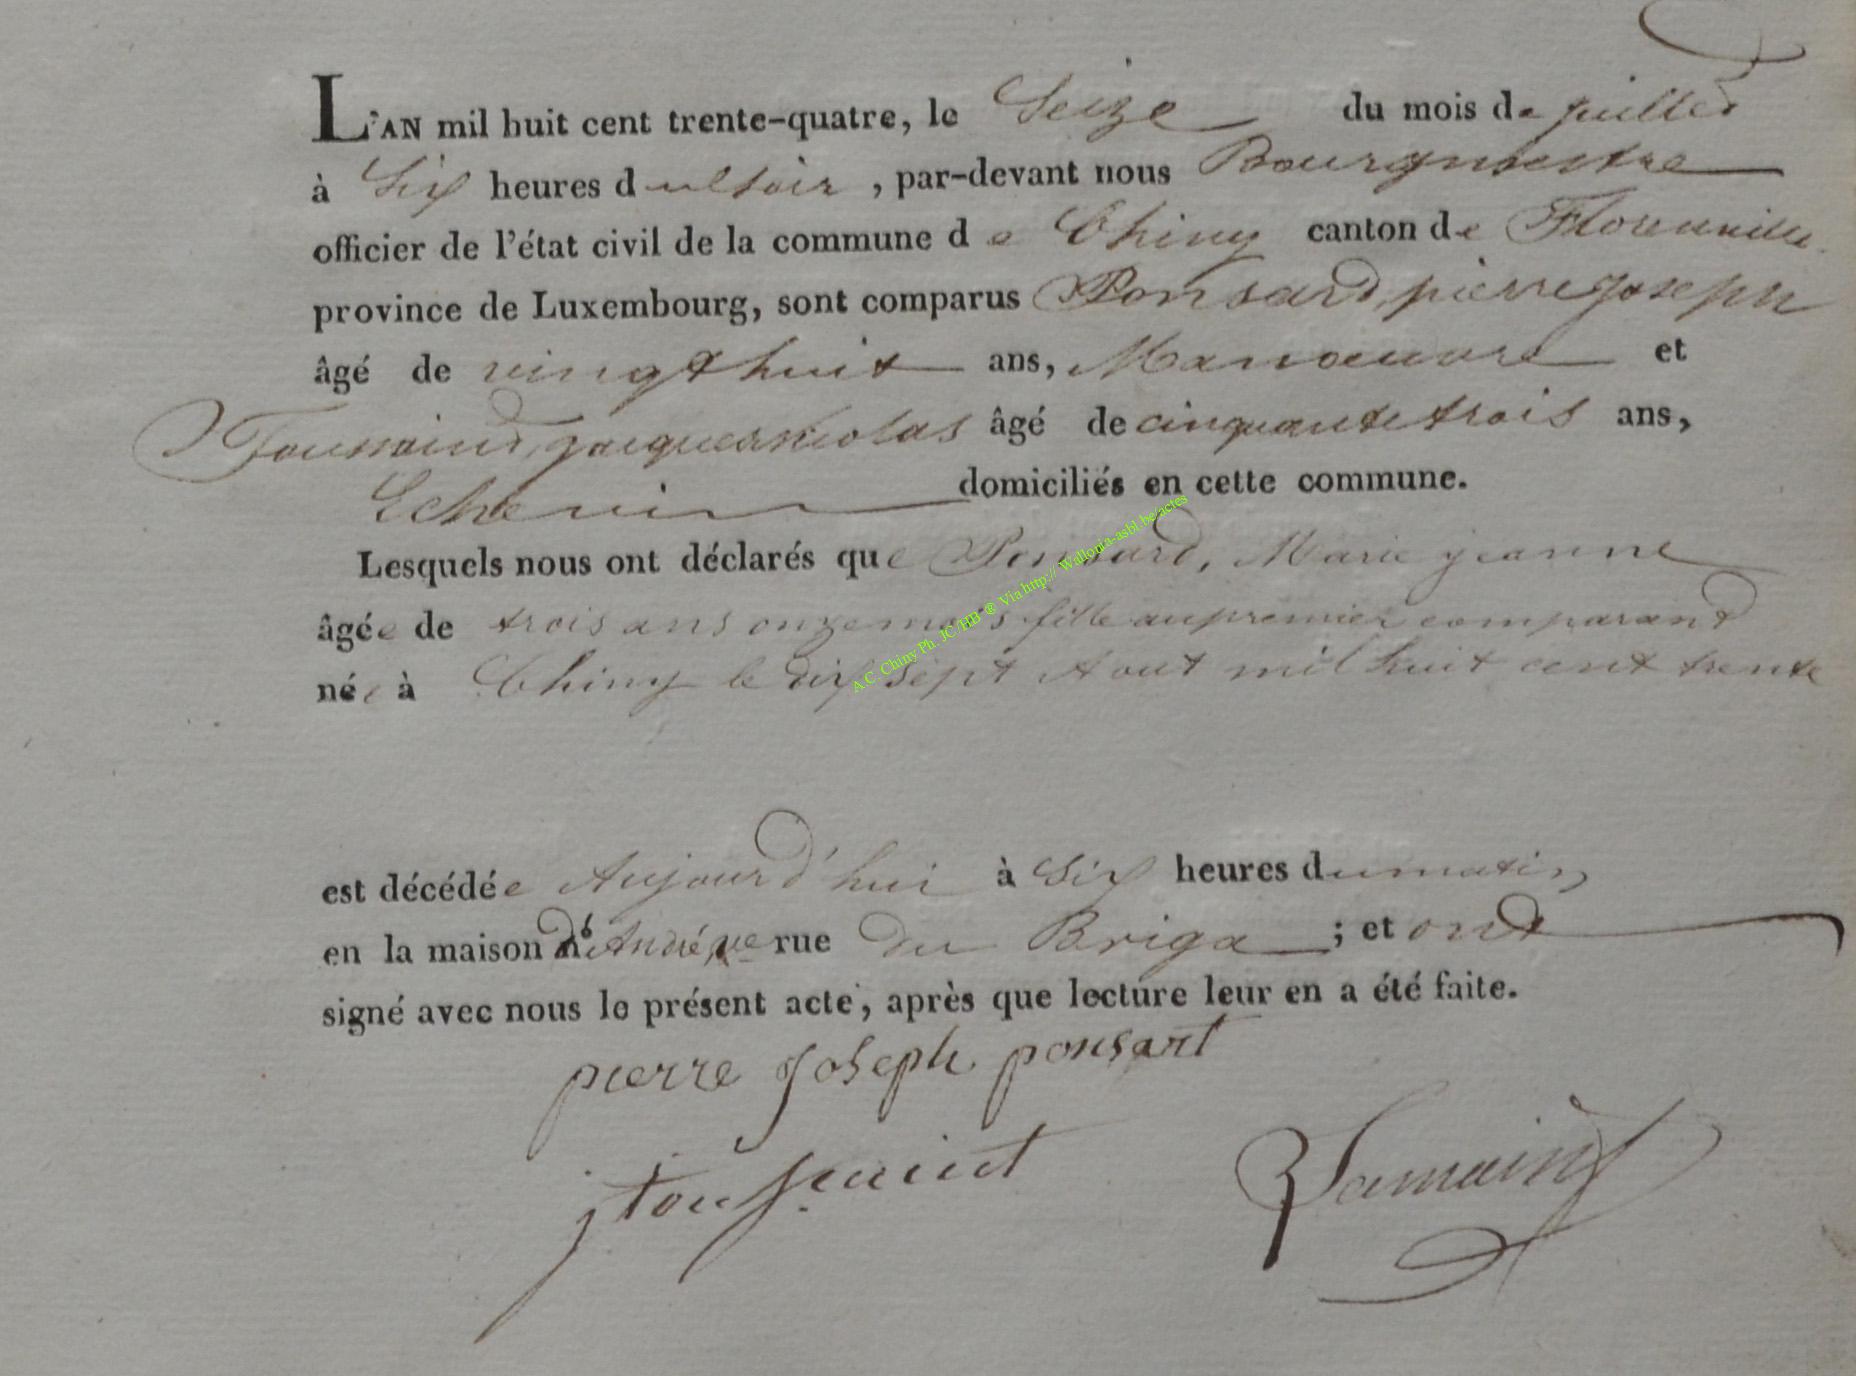 L'AN mil huit cent trente-quatre, le Seize du mois de juillet
à Six heures du soir, par-devant nous Bourgmestre
officier de l'état civil de la commune de Chiny canton de Florenville
province de Luxembourg, sont comparus Ponsard, pierre joseph
âgé de vingt huit ans, Manoeuvre et
Toussaint, jacques nicolas âgé de cinquante trois ans,
Echevin domiciliés en cette commune.
Lesquels nous ont déclarés que Ponsard, Marie jeanne
âgée de trois ans onze mois fille au premier comparant
née à Chiny le dix sept Aout mil huit cent trente
A.C. Chiny Ph. JC/HB @ Via http:// Wallonia-asbl.be/actes
est décédée Aujourd'hui à Six heures du matin
en la maison rue du Briga ; et ont
signé avec nous le présent acte, après que lecture leur en a été faite.
pierre Joseph ponsart
j toussaint